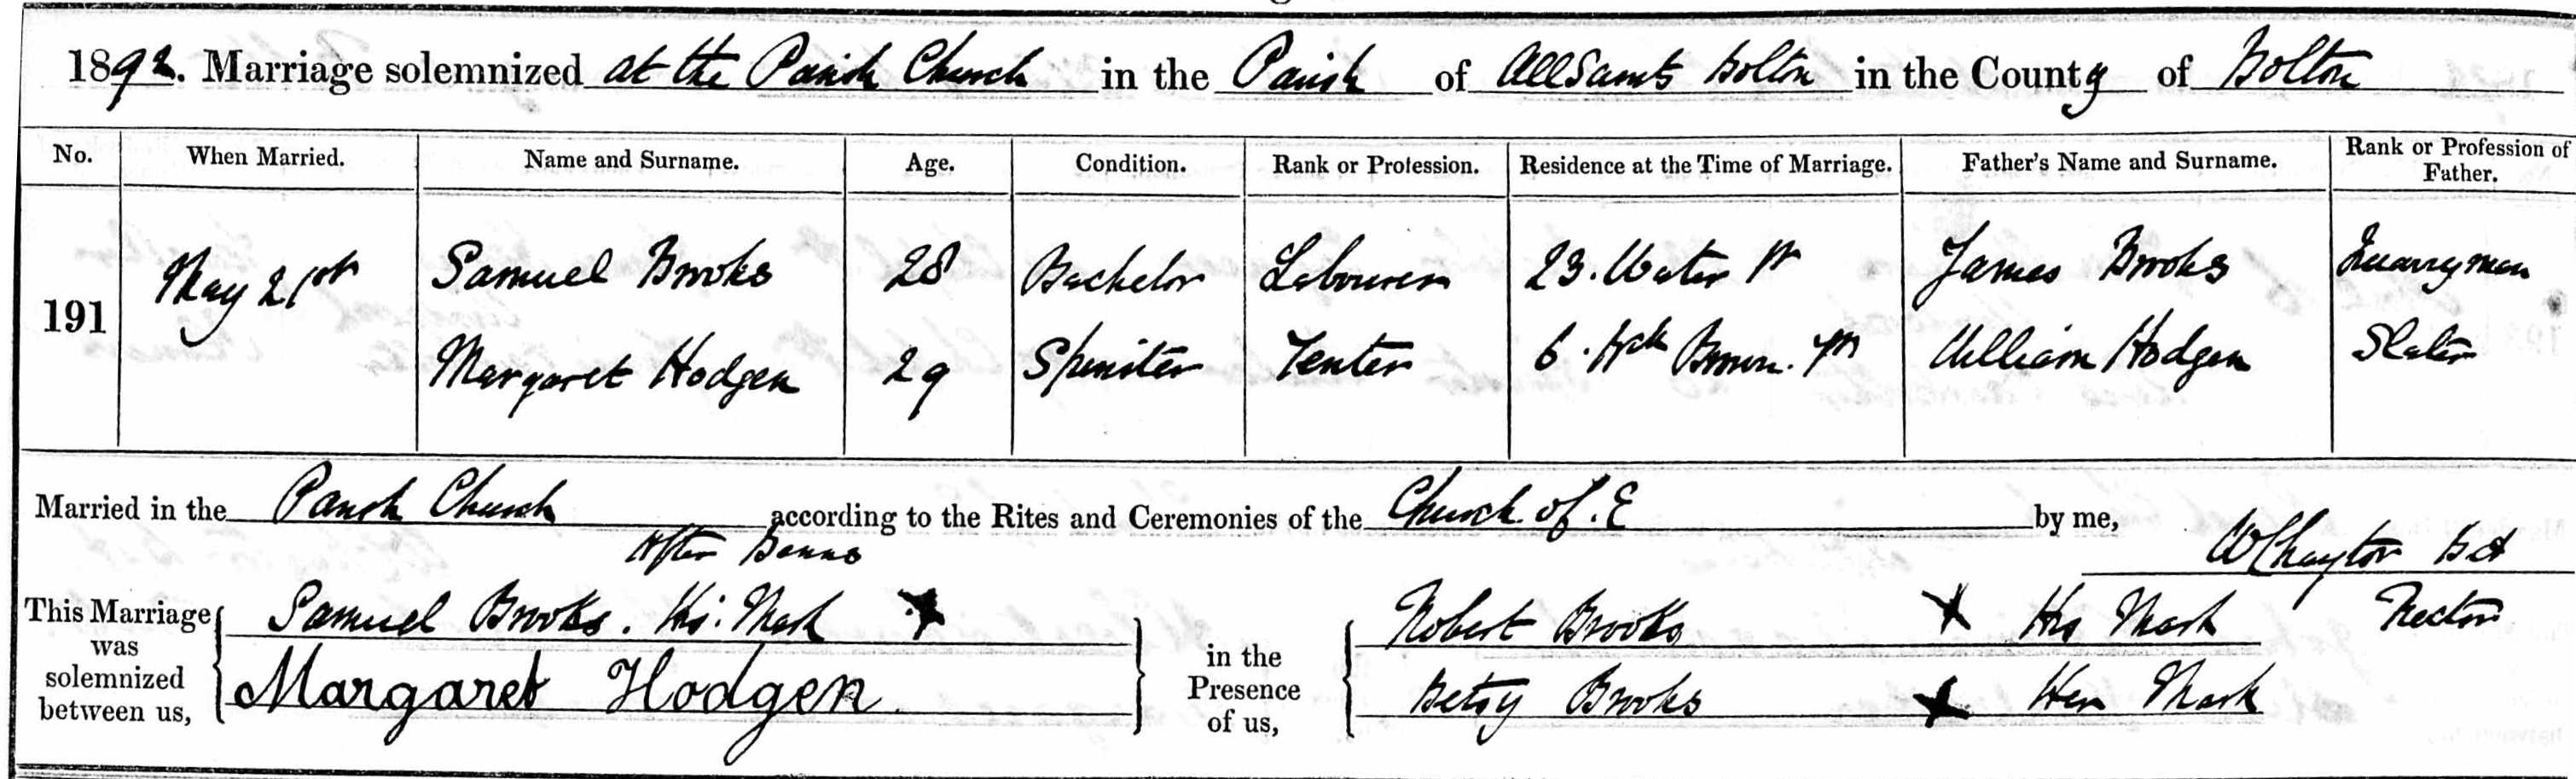 1892. Marriage solemnized at the Parish Church in the Parish of All Saints Bolton in the County of Bolton
No. When Married. Name and Surname. Age. Condition. Rank or Profession. Residence at the Time of Marriage. Father's Name and Surname. Rank or Profession of Father.
191 May 21st Samuel Brooks 28 Bachelor Labourer 23. Water St James Brooks Quarryman
Margaret Hodgen 29 Spinster Tenter 6. Brown. St William Hodgen Slater
Married in the Parish Church according to the Rites and Ceremonies of the Church of. E by me,
After Banns W Chaytor Bt
This Marriage was solemnized between us, Samuel Brooks. His. Mark X in the Presence of us, Robert Brooks X His Mark Rector
Margaret Hodgen. Betsy Brooks X Her Mark